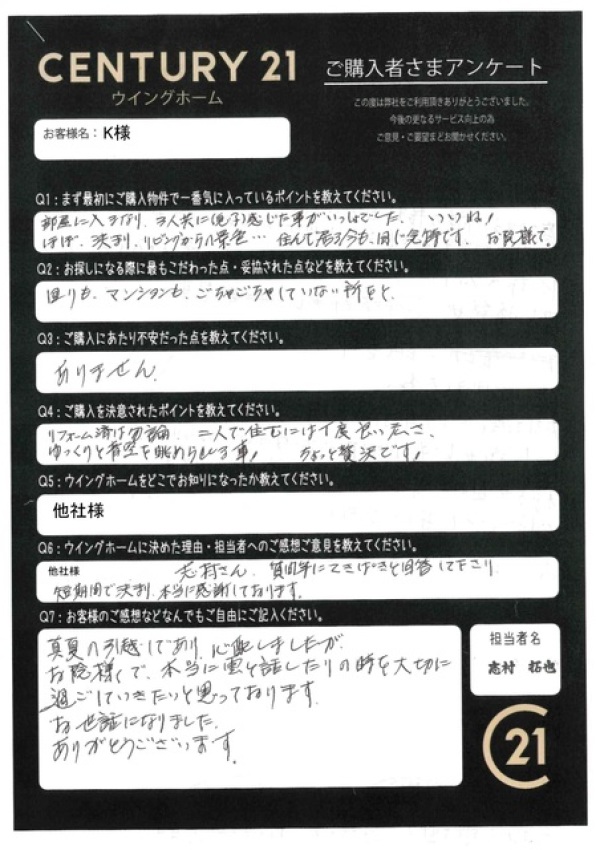 CENTURY 21
ウイングホーム
ご購入者さまアンケート
この度は弊社をご利用頂きありがとうございました。
今後の更なるサービス向上の為
ご意見・ご要望をお聞かせください。
お客様名: K様
Q1:まず最初にご購入物件で一番気に入っているポイントを教えてください。
部屋に入るなり、3人共に(息子)感じた事がいっしょでした、いいね!
ほぼ、決まり、リビングからの景色… 住んで居る今も、同じ気持です。お陰様で。
Q2:お探しになる際に最もこだわった点・妥協された点などを教えてください。
回りも、マンションも、ごちゃごちゃしていない所をと、
Q3:ご購入にあたり不安だった点を教えてください。
ありません。
Q4:ご購入を決意されたポイントを教えてください。
リフォーム済は勿論、二人で住むには丁度良い広さ、
ゆっくりと青空を眺められる事! ちょっと贅沢です!
Q5:ウイングホームをどこでお知りになったか教えてください。
他社様
Q6:ウイングホームに決めた理由・担当者へのご感想ご意見を教えてください。
他社様 志村さん、質問等にてきぱきと回答して下さり
短期間で決まり、本当に感謝しております。
Q7:お客様のご感想などなんでもご自由にご記入ください。
真夏の引越しであり、心配しましたが、
お陰様で、本当に雲と話したりの時を大切に
過ごしていきたいと思っております。
お世話になりました。
ありがとうございます。
担当者名
志村 拓也
C21